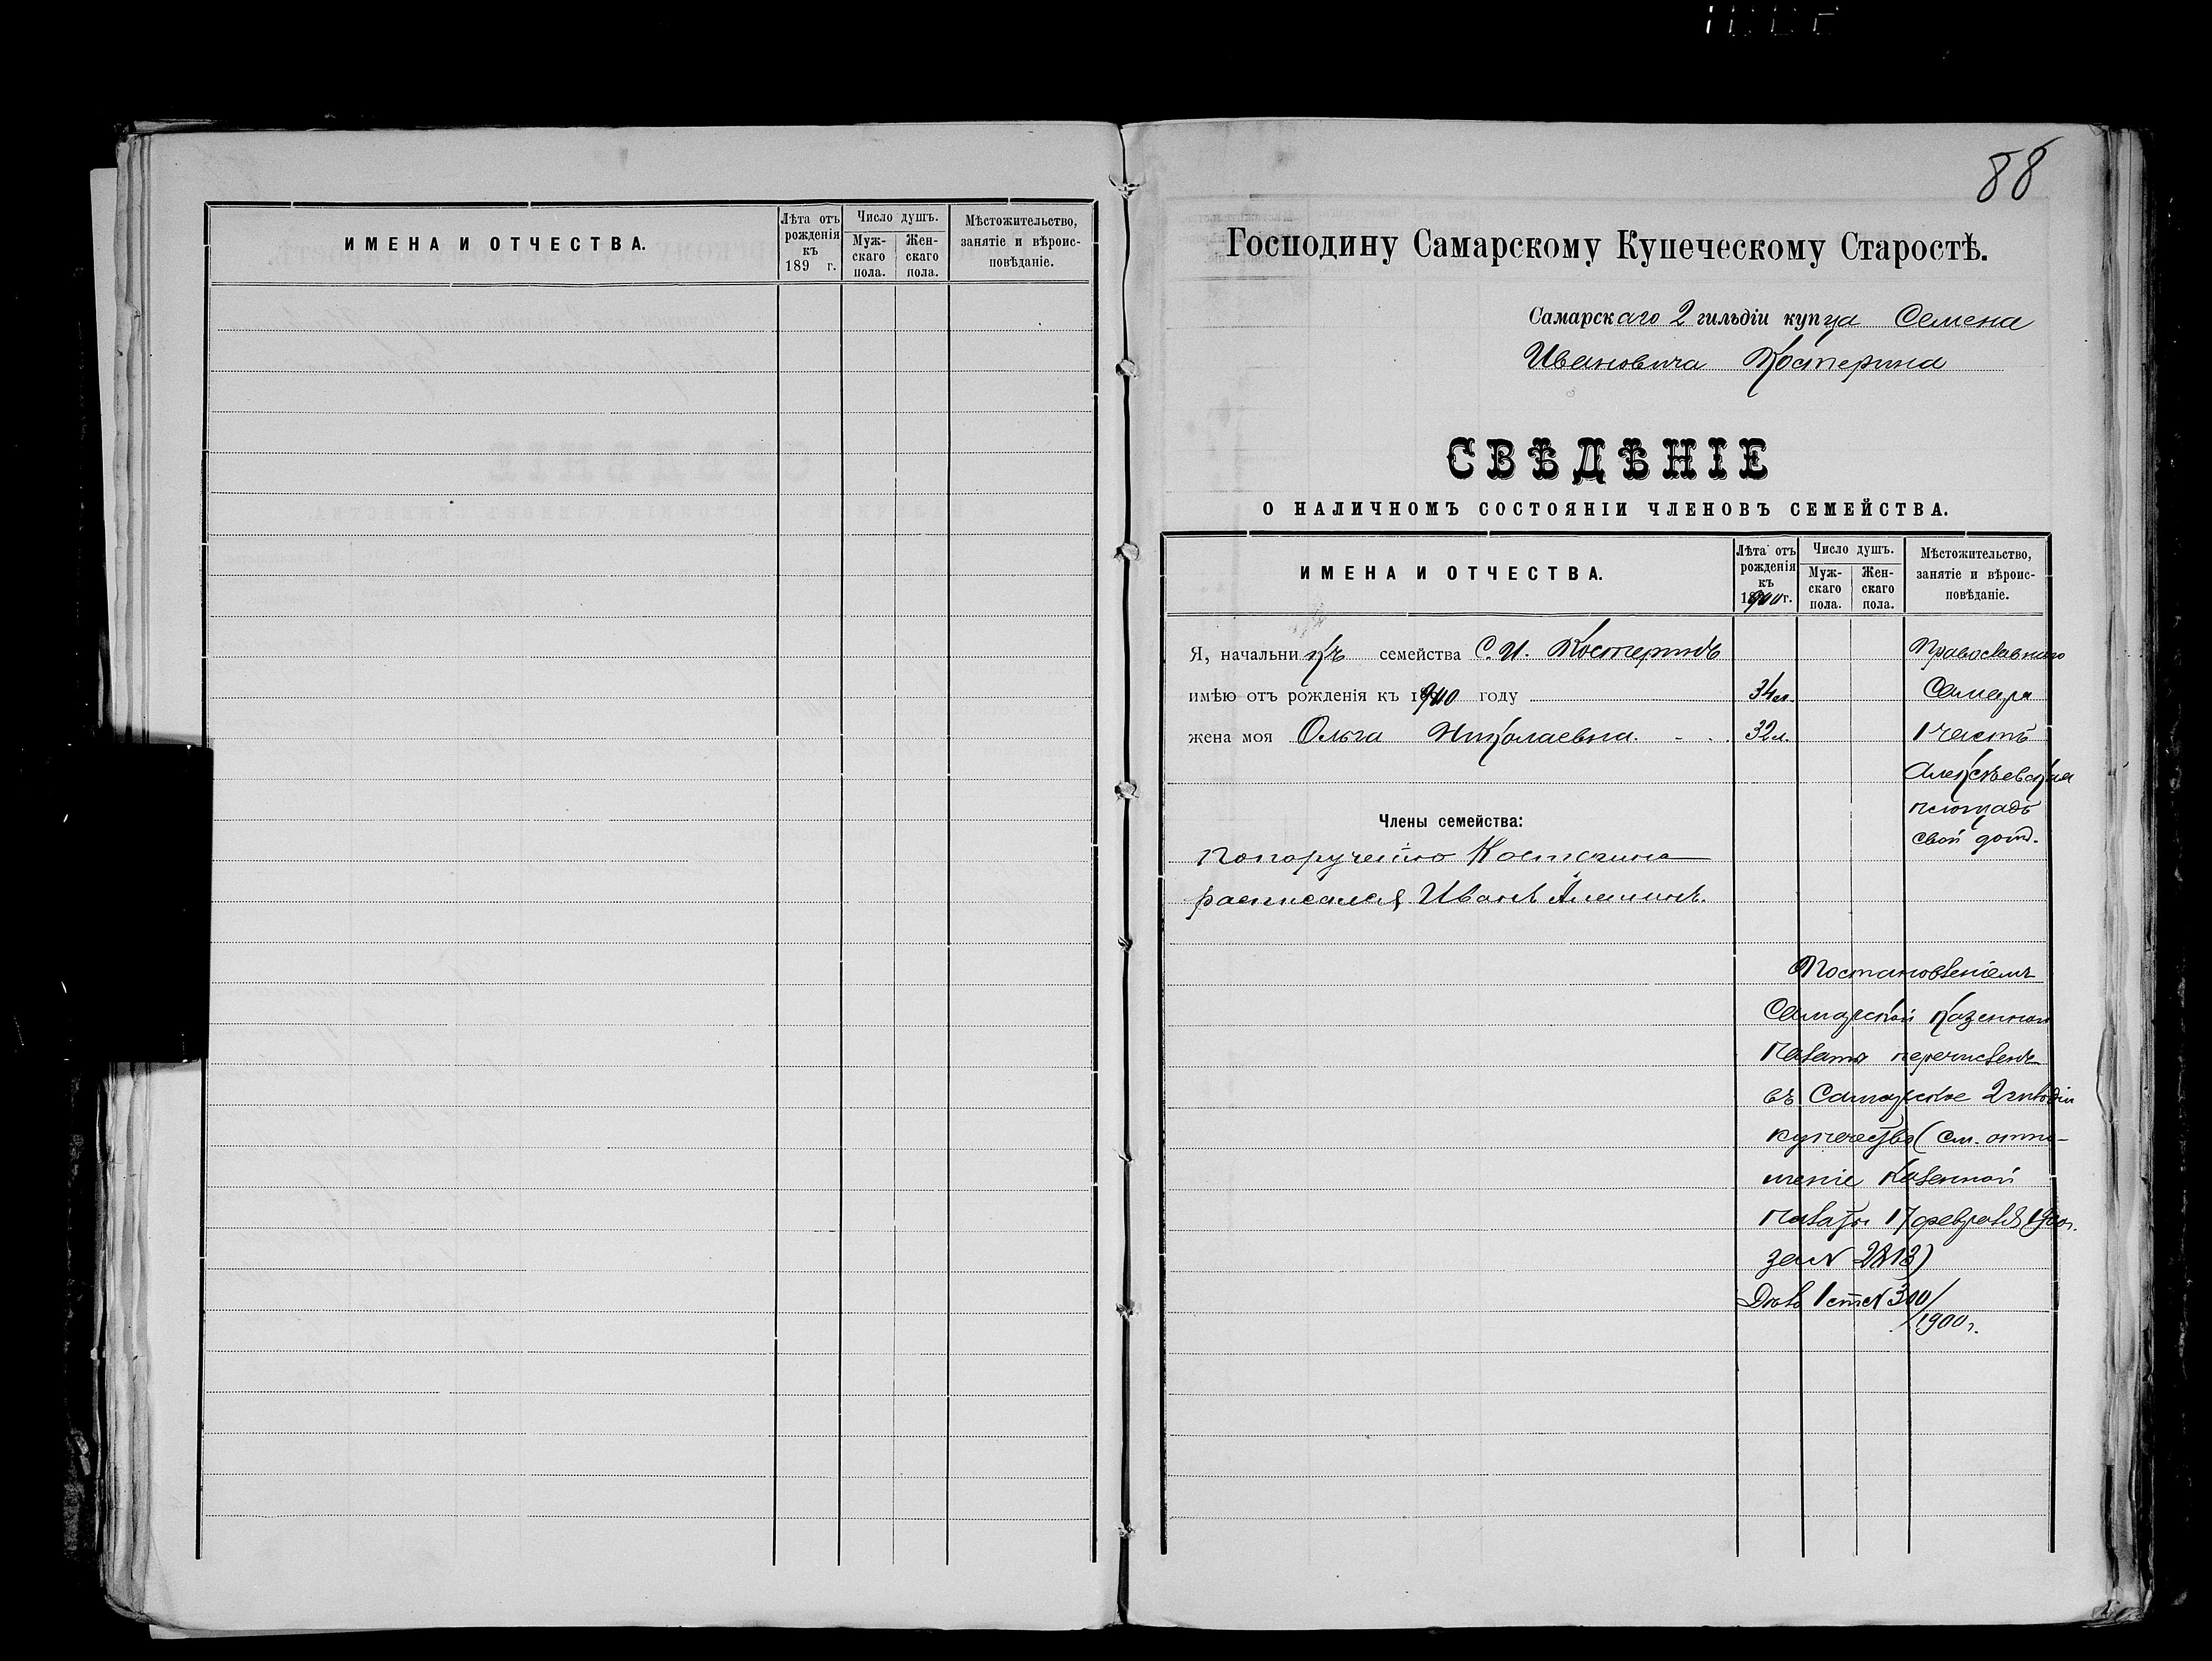 ИМЕНА И ОТЧЕСТВА.
Лѣта отъ рожденія къ 189 г.
Число душъ.
Муж-скаго пола.
Жен-скаго пола.
Мѣстожительство, занятіе и вѣроис-повѣданіе.
88
Господину Самарскому Купеческому Старостѣ.
Самарскаго 2 гильдіи купца Семена
Ивановича Костерина
СВѢДѢНІЕ
О НАЛИЧНОМЪ СОСТОЯНІИ ЧЛЕНОВЪ СЕМЕЙСТВА.
ИМЕНА И ОТЧЕСТВА.
Лѣта отъ рожденія къ 1900 г.
Число душъ.
Муж-скаго пола.
Жен-скаго пола.
Мѣстожительство, занятіе и вѣроис-повѣданіе.
Я, начальникъ семейства С. И. Костеринъ Православнаго
имѣю отъ рожденія къ 1900 году 34 л. Самара
жена моя Ольга Николаевна. 32 л. 1 часть
Алексѣевская
площадь
Члены семейства: свой домъ.
По порученію Костерина
расписался Иванъ
Постановленіемъ
Самарской Казенной
Палаты перечисленъ
въ Самарское 2 гильдіи
купечество (см. отно-
шеніе Казенной
Палаты 17 февраля 1900 г.
за N 2813)
1 ст. N 300/
/1900 г.